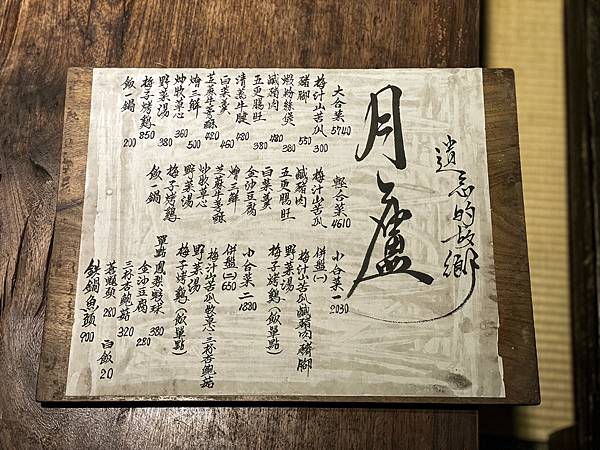 遺忘的故鄉
月廬
大合菜 5740
梅汁山苦瓜 300
豬腳 550
蝦粉絲煲 480
鹹豬肉 380
五更腸旺 380
白菜羹 460
芝麻牛蒡酥 420
燴三鮮 500
炒軟草心 360
野菜湯 380
梅子烤雞 850
飯一鍋 200
輕合菜 4610
梅汁山苦瓜
鹹豬肉
五更腸旺
白菜羹
金沙豆腐
燴三鮮
芝麻牛蒡酥
炒軟草心
野菜湯
梅子烤雞
飯一鍋
小合菜一 2030
併盤(一)
梅汁山苦瓜鹹豬肉豬腳
野菜湯
梅子烤雞(飯單點)
小合菜二 1830
併盤(二) 650
梅汁山苦瓜軟草心三杯杏鮑菇
野菜湯
梅子烤雞(飯單點)
單點 鳳梨蝦球 380
金沙豆腐 280
三杯杏鮑菇 320
蒼蠅頭 280
白飯 20
鐵鍋魚頭 900